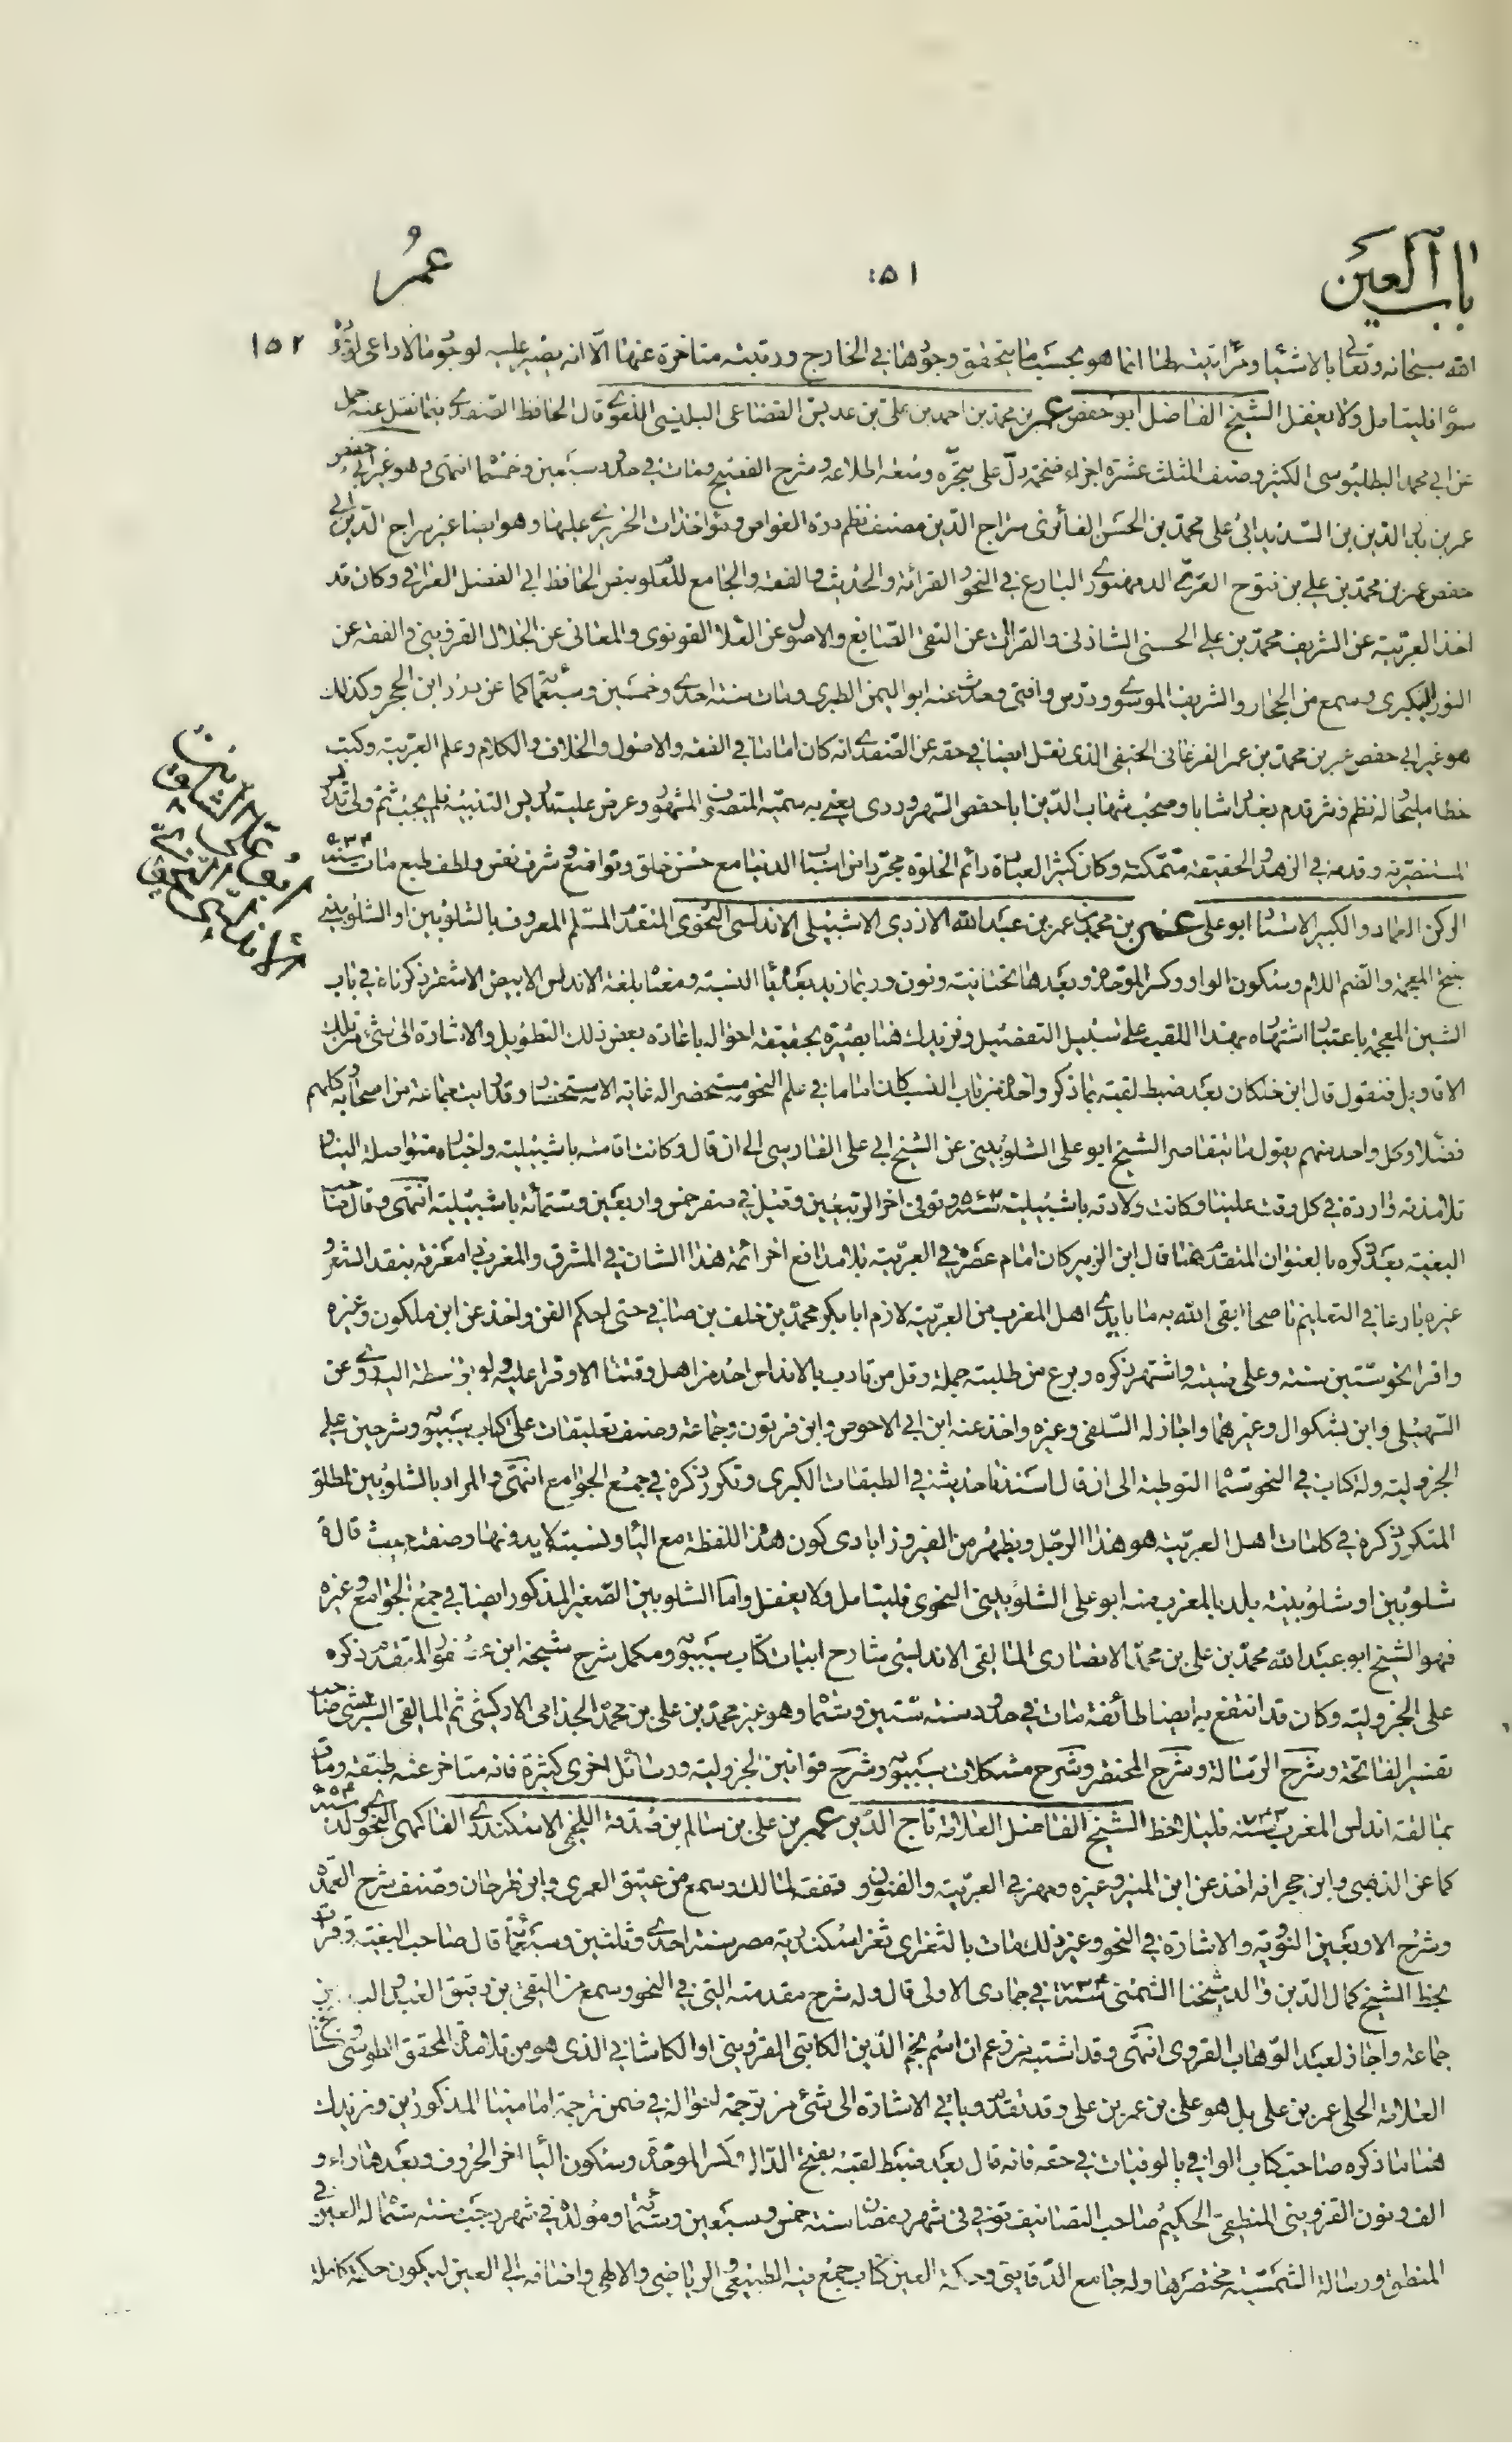 باب العين
٥١
عمر
١٥٢
الله سبحانه وتعالى بالاشياء ومراتبته لها انما هو بحسب ما يتحقق وجودها في الخارج ورتبته متاخرة عنها الّا انه يصير عليه لوجوه لا داعي
سؤا فليتامل ولا يغفل الشيخ الفاضل ابو حفص عمر بن محمد بن احمد بن علي بن عديس القضاعي البلنسي اللغوي قال الحافظ الصفدي فيما نقل عنه حمل
عن ابي محمد البطليوسي الكثير وصنف المثلث عشرة اجزاء ضخمة دلّ على تبحّره وسعة اطلاعه وشرح الفصيح ومات في حدود سبعين وخمسما انتهى وهو غير ابي حفص
عمر بن بدر الدين بن السديد ابي علي محمد بن الحسن الفائزي سراج الدين مصنف نظم درة الغواص ومؤاخذات الحريري عليها وهو ايضا غير سراج الدين ابي
حفص عمر بن محمد بن علي بن فتوح العزّي الدمنهوري البارع في النحو والقرائة والحديث والفقه والجامع للعلوم بنص الحافظ ابي الفضل العراقي وكان قد
اخذ العربية عن الشريف محمد بن علي الحسني الشاذلي والقرائة عن التقي الصايغ والاصول عن العلا القونوي والمعاني عن الجلال القزويني والفقه عن
النور البكري وسمع من الحجار والشريف الموسوي ودرّس وافتى وحدث عنه ابو اليمن الطبري ومات سنة احدى وخمسين وسبعمائة كما عن درر ابن الحجر وكذلك
هو غير ابي حفص عمر بن محمد بن عمر الفرغاني الحنفي الذي نقل ايضا في حقه عن الصفدي انه كان اماما في الفقه والاصول والخلاف والكلام وعلم العربية وكتب
خطا مليحا له نظم ونثر قدم بغداد شابا وصحب شهاب الدين ابا حفص السهروردي يعني به سميّه المتصوف المشهور وعرض عليه تدريس التنبيه فلم يجب ثم ولي تدريس
المستنصرية وقدمه في الزهد والحقيقة متمكنة وكان كثير العبادة دائم الخلوة مجردا من اسباب الدنيا مع حسن خلق وتواضع وشرف نفس ولطف طبع مات سنة
الركن العماد والكبير الاستاد ابو علي عمر بن محمد بن عمر بن عبد الله الازدي الاشبيلي الاندلسي النحوي المتقدّم المسلّم المعروف بالشلوبين او الشلوبيني
بفتح المعجمة والضم اللام وسكون الواو وكسر الموحدة وبعدها تحتانية ونون وربما زيد بعدها ياء النسبة ومعناه بلغة الاندلس الابيض الاشقر ذكرناه في باب
الشين المعجمة باعتبار اشتهاره بهذا اللقب على سبيل التفصيل ونزيدك هنا بصيرة بحقيقة احواله باعادة بعض ذلك التطويل والاشارة الى شئ من تلك
الاقاويل فنقول قال ابن خلكان بعد ضبط لقبه بما ذكر واخذه من باب النسب كان اماما في علم النحو مستحضرا له غاية الاستحضار وقد رايت جماعة من اصحابه كلهم
فضلاء وكل واحد منهم يقول ما يتقاصر الشيخ ابو علي الشلوبيني عن الشيخ ابي علي الفارسي الى ان قال وكانت اقامته باشبيلية واخباره متواصلة الينا
تلامذته واردة في كل وقت علينا وكانت ولادته باشبيلية سنة ٥٦٢ وتوفي اخر الربيعين وقيل في صفر خمس واربعين وستمائة باشبيلية انتهى وقال صاحب
البغية بعد ذكره بالعنوان المتقدم هنا قال ابن الزبير كان امام عصره في العربية بلا مدافع اخر ائمة هذا الشان في المشرق والمغرب ذا معرفة بنقد الشعر
وغيره بارعا في التعليم ناصحا ابقى الله به ما بايدي اهل المغرب من العربية لازم ابا بكر محمد بن خلف بن صاف حتى احكم الفن واخذ عن ابن ملكون وغيره
واقرا نحو ستين سنة وعلى صيته واشتهر ذكره وبرع من طلبته جملة وقل من تادب بالاندلس احد من اهل وقتنا الا وقرا عليه ولو بواسطة البادي وعن
السهيلي وابن بشكوال وغيرهما واجاز له السلفي وغيره واخذ عنه ابن ابي الاحوص وابن فرتون وجماعة وصنف تعليقات على كتاب سيبويه وشرحين على
الجزولية وله كتاب في النحو سمّا التوطية الى ان قال اسندنا حديثه في الطبقات الكبرى وتكرر ذكره في جمع الجوامع انتهى والمراد بالشلوبين المطلق
المتكرر ذكره في كلمات اهل العربية هو هذا الرجل ويظهر من الفيروزابادي كون هذا اللفظة مع الياء ولنسبته لا بدونها وصفة حيث قال في
شلوبين او شلوبينه بلد بالمغرب منه ابو علي الشلوبيني النحوي فليتامل ولا يغفل واما الشلوبين الصغير المذكور ايضا في جمع الجوامع وغيره
فهو الشيخ ابو عبد الله محمد بن علي بن محمد الانصاري المالقي الاندلسي شارح ابيات كتاب سيبويه ومكمل شرح شيخه ابن عصفور المتقدم ذكره
على الجزولية وكان قد انتفع به ايضا طائفة مات في حدود سنة ستين وستما وهو غير محمد بن علي بن محمد الجذامي الاركشي ثم المالقي الشريشي صاحب
تفسير الفاتحة وشرح الرسالة وشرح المختصر وشرح مشكلات سيبويه وشرح قوانين الجزولية ورسائل اخرى كثيرة فانه متاخر عنه طبقة ومات
بمالقة اندلس المغرب سنة فليلاحظ الشيخ الفاضل العلامة تاج الدين عمر بن علي بن سالم بن صدقة اللخمي الاسكندري الفاكهي النحوي ولد سنة ٦٥٤
كما عن الذهبي وابن حجر انه اخذ عن ابن المنير وغيره ومهر في العربية والفنون وتفقه لمالك وسمع من عتيق العمري وابن طرخان وصنف شرح العمدة
وشرح الاربعين النووية والاشارة في النحو وغير ذلك مات بالثغر اي ثغر اسكندرية مصر سنة احدى وثلثين وسبعمائة قال صاحب البغية وقرات
بخط الشيخ كمال الدين والد شيخنا الشمني سنة ٧٣٤ في جمادى الاولى قال وله شرح مقدمته التي في النحو وسمع من التقي بن دقيق العيد والبدر بن
جماعة واجاز لعبد الوهاب القروي انتهى وقد اشتبه من زعم ان اسم نجم الدين الكاتبي القزويني او الكاشاني الذي هو من تلامذة المحقق الطوسي وشيخنا
العلامة الحلي عمر بن علي بل هو علي بن عمر بن علي وقد تقدم وياتي الاشارة الى شئ من ترجمة احواله في ضمن ترجمة امامينا المذكورين ونزيدك
هنا ما ذكره صاحب كتاب الوافي بالوفيات في حقه فانه قال بعد ضبط لقبه بفتح الدال وكسر الموحدة وسكون الياء اخر الحروف وبعدها راء و
الف ونون القزويني المنطقي الحكيم صاحب التصانيف توفي في شهر رمضان سنة خمس وسبعين وستما ومولده في شهر رجب سنة ستما له العين في
المنطق ورسالة الشمسية مختصرها وله جامع الدقايق وحكمة العين كتاب جمع فيه الطبيعي والرياضي والالهي واضافه الى العين ليكون حكمة كاملة